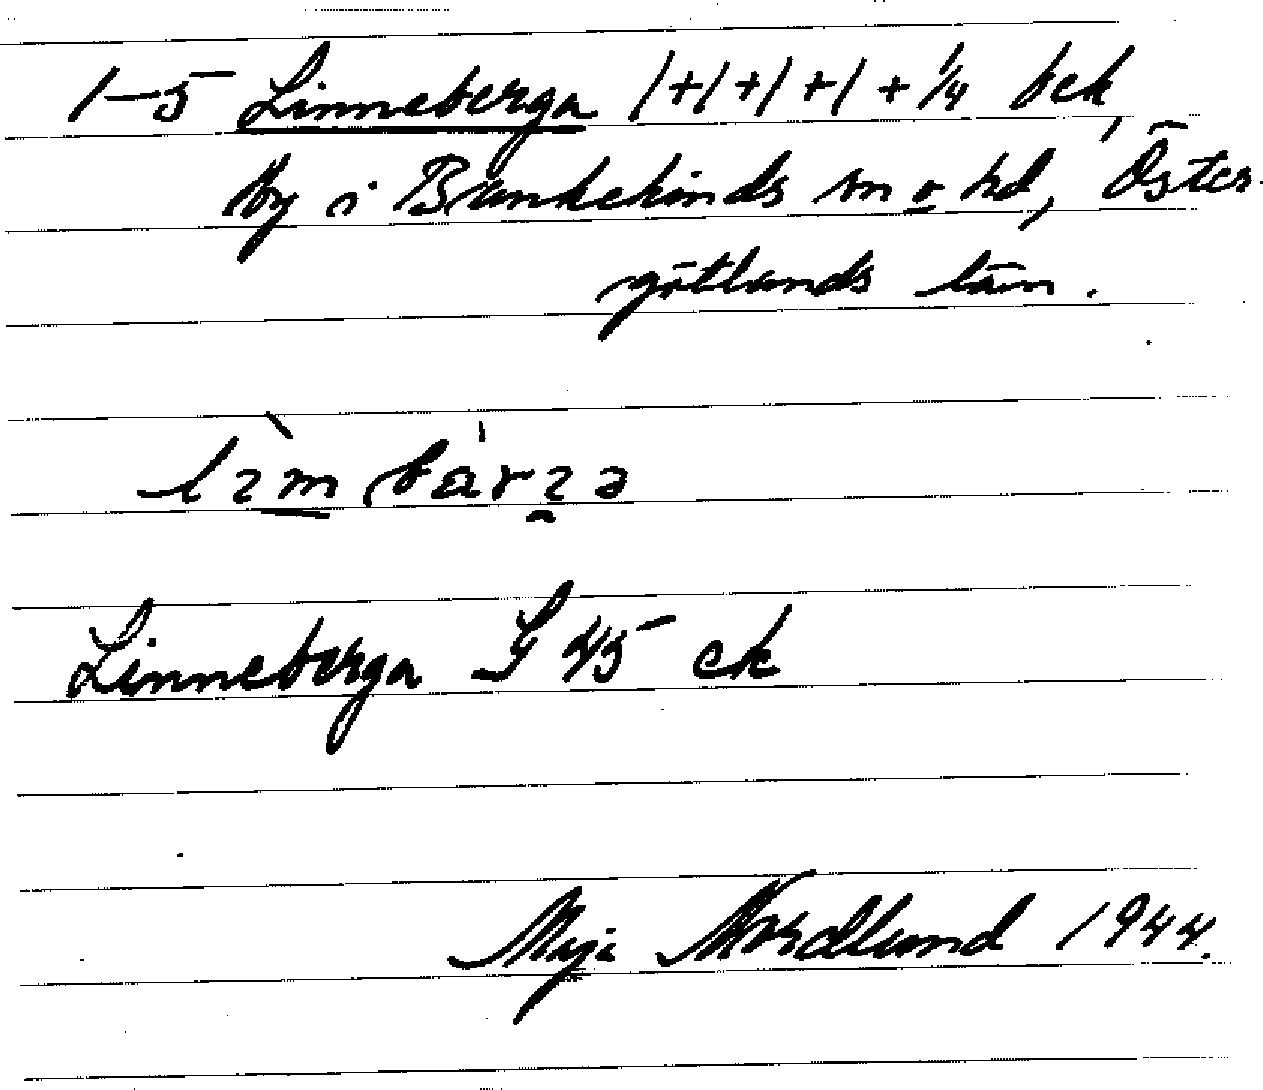 1–5 Linneberga 1+1+1+1+¼ bek,
by i Bankekinds sn o hd, Öster-
götlands län.
Linneberga G 45 ek
Maja Nordlund 1944.